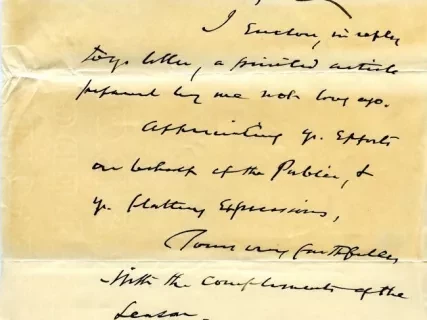 I Enclose, in reply
to yr letter, a printed article
prepared by me not long ago.
Appreciating yr. Efforts
on behalf of the Public, &
yr. flattery Expressions,
Yours very faithfully
With the compliments of the
Season.